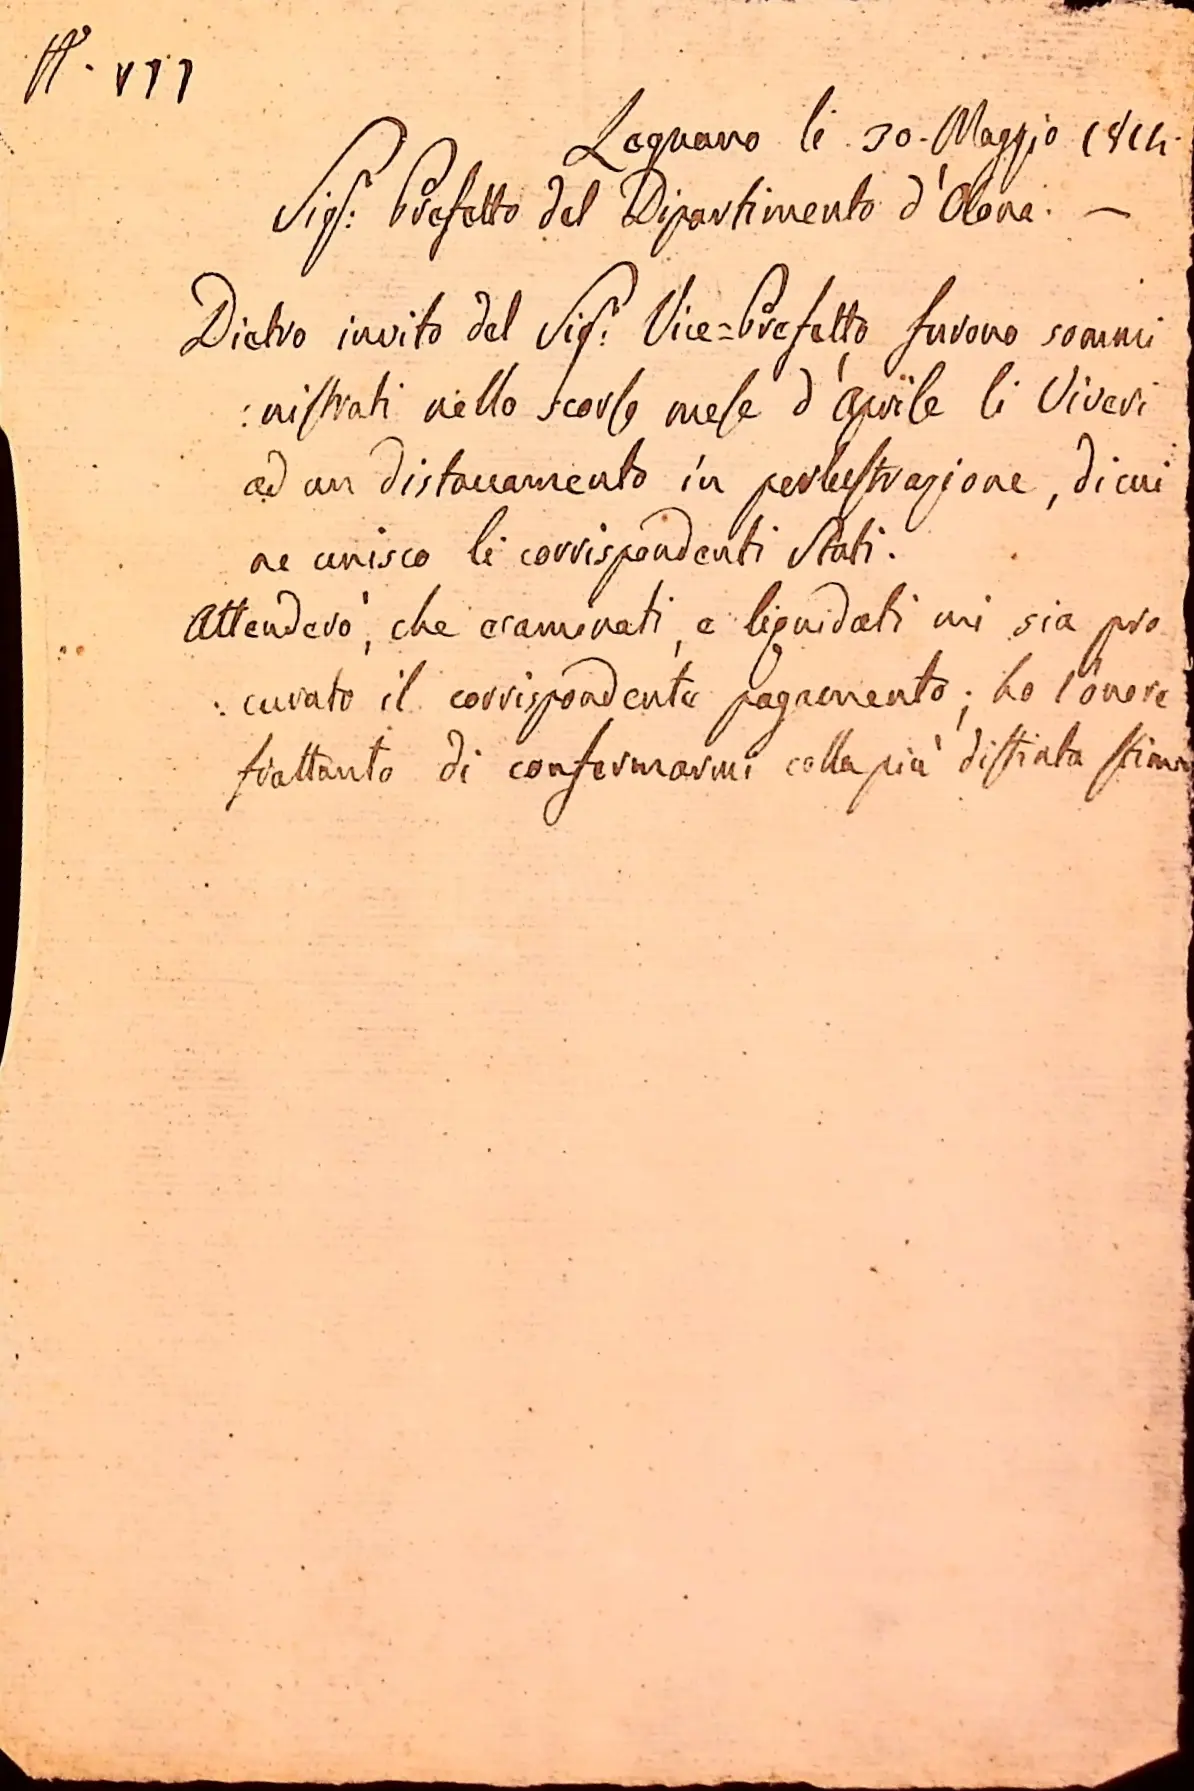 N.° VII
Legnano li 30. Maggio 1814.
Sig.r Prefetto del Dipartimento d'Olona. —
Dietro invito del Sig.r Vice=Prefetto furono sommi
:nistrati nello scorso mese d'Aprile li Viveri
ad un distaccamento in perlustrazione, di cui
ne unisco li corrispondenti Stati.
Attenderò, che esaminati, e liquidati mi sia pro
:curato il corrispondente pagamento; ho l'onore
frattanto di confermarmi colla più distinta stima